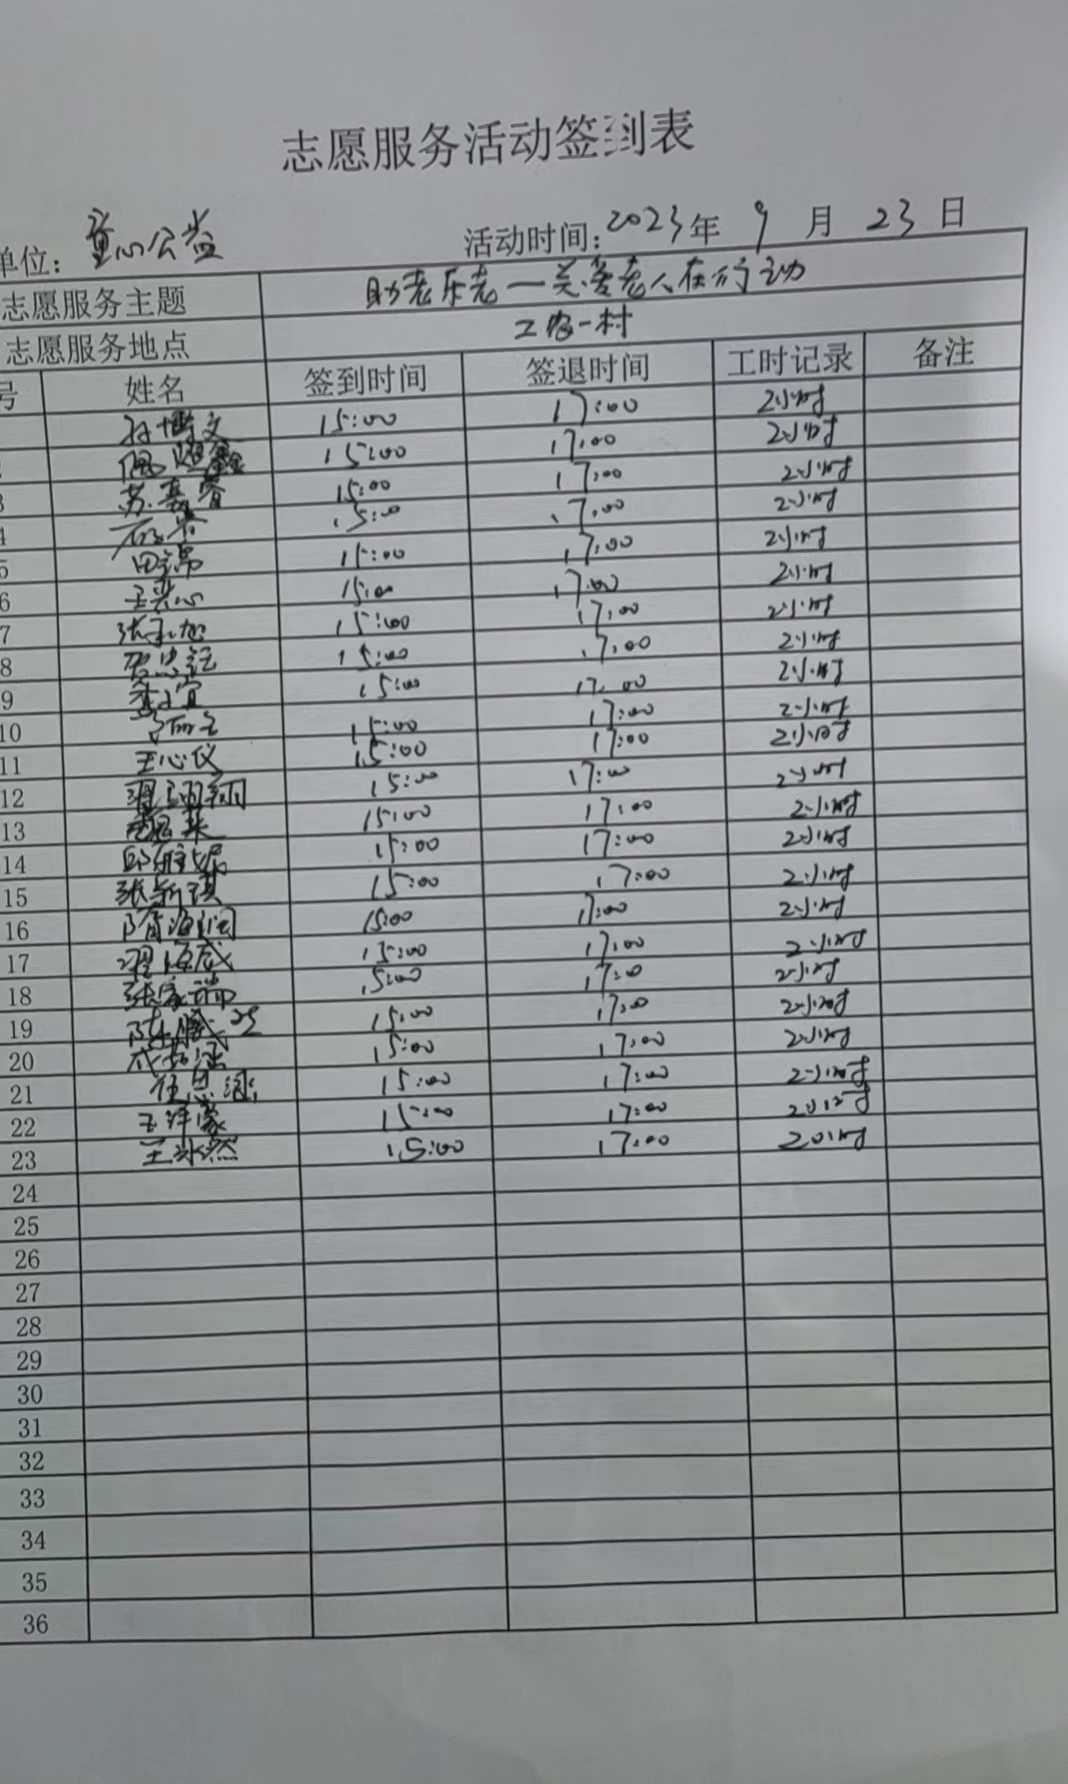 志愿服务活动签到表
单位: 童心公益 活动时间: 2023年 9 月 23 日
志愿服务主题 助老乐老一关爱老人在行动
志愿服务地点 工农一村
号 姓名 签到时间 签退时间 工时记录 备注
孙博文 15:00 17:00 2小时
15:00 17:00 2小时
3 苏嘉睿 15:00 17:00 2小时
4 15:00 17:00 2小时
5 15:00 17:00 2小时
6 15:00 17:00 2小时
7 15:00 17:00 2小时
8 15:00 17:00 2小时
9 15:00 17:00 2小时
10 15:00 17:00 2小时
11 王心仪 15:00 17:00 2小时
12 15:00 17:00 2小时
13 15:00 17:00 2小时
14 15:00 17:00 2小时
15 张新琪 15:00 17:00 2小时
16 15:00 17:00 2小时
17 15:00 17:00 2小时
18 张家瑞 15:00 17:00 2小时
19 15:00 17:00 2小时
20 15:00 17:00 2小时
21 15:00 17:00 2小时
22 15:00 17:00 2小时
23 王冰然 15:00 17:00 2小时
24
25
26
27
28
29
30
31
32
33
34
35
36